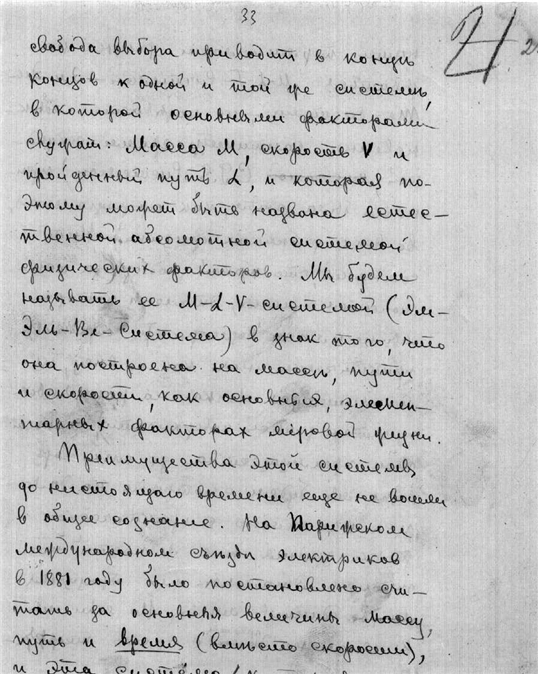 33
24
свобода выбора приводит в концѣ
концов к одной и той же системѣ,
в которой основными факторами
служат: Масса М, скорость V и
пройденный путь L, и которая по-
этому может быть названа естес-
твенной абсолютной системой
физических факторов. Мы будем
называть ее M-L-V-системой (Эм-
Эль-Ве-Система) в знак того, что
она построена на массѣ, пути
и скорости, как основных, элемен-
тарных факторах мировой жизни.
Преимущества этой системы
до настоящаго времени еще не вошли
в общее сознание. На Парижском
международном съѣздѣ электриков
в 1881 году было постановлено счи-
тать за основныя величины массу,
путь и время (вмѣсто скорости),
и эта система